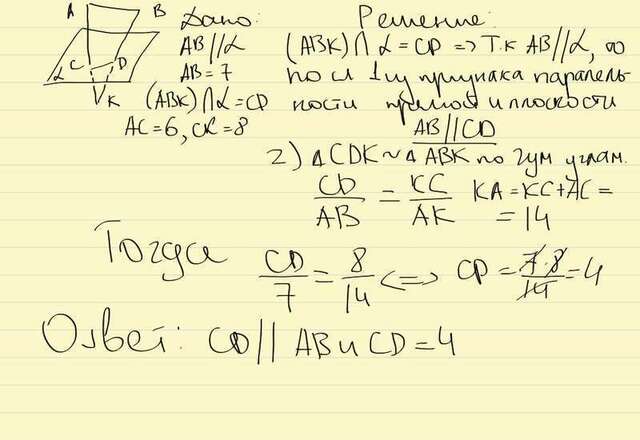 A B
C D
α
K
Дано:
AB∥α
AB=7
(ABK)∩α=CD
AC=6, CK=8
Решение:
(ABK)∩α=CD => Т.к AB∥α, то
по сл 1му признака паралель-
ности прямой и плоскости
AB∥CD
2) △CDK~△ABK по 2ум углам.
CD/AB = KC/AK KA=KC+AC=
=14
Тогда CD/7 = 8/14 <=> CD = 7·8/14 = 4
Ответ: CD∥AB и CD=4